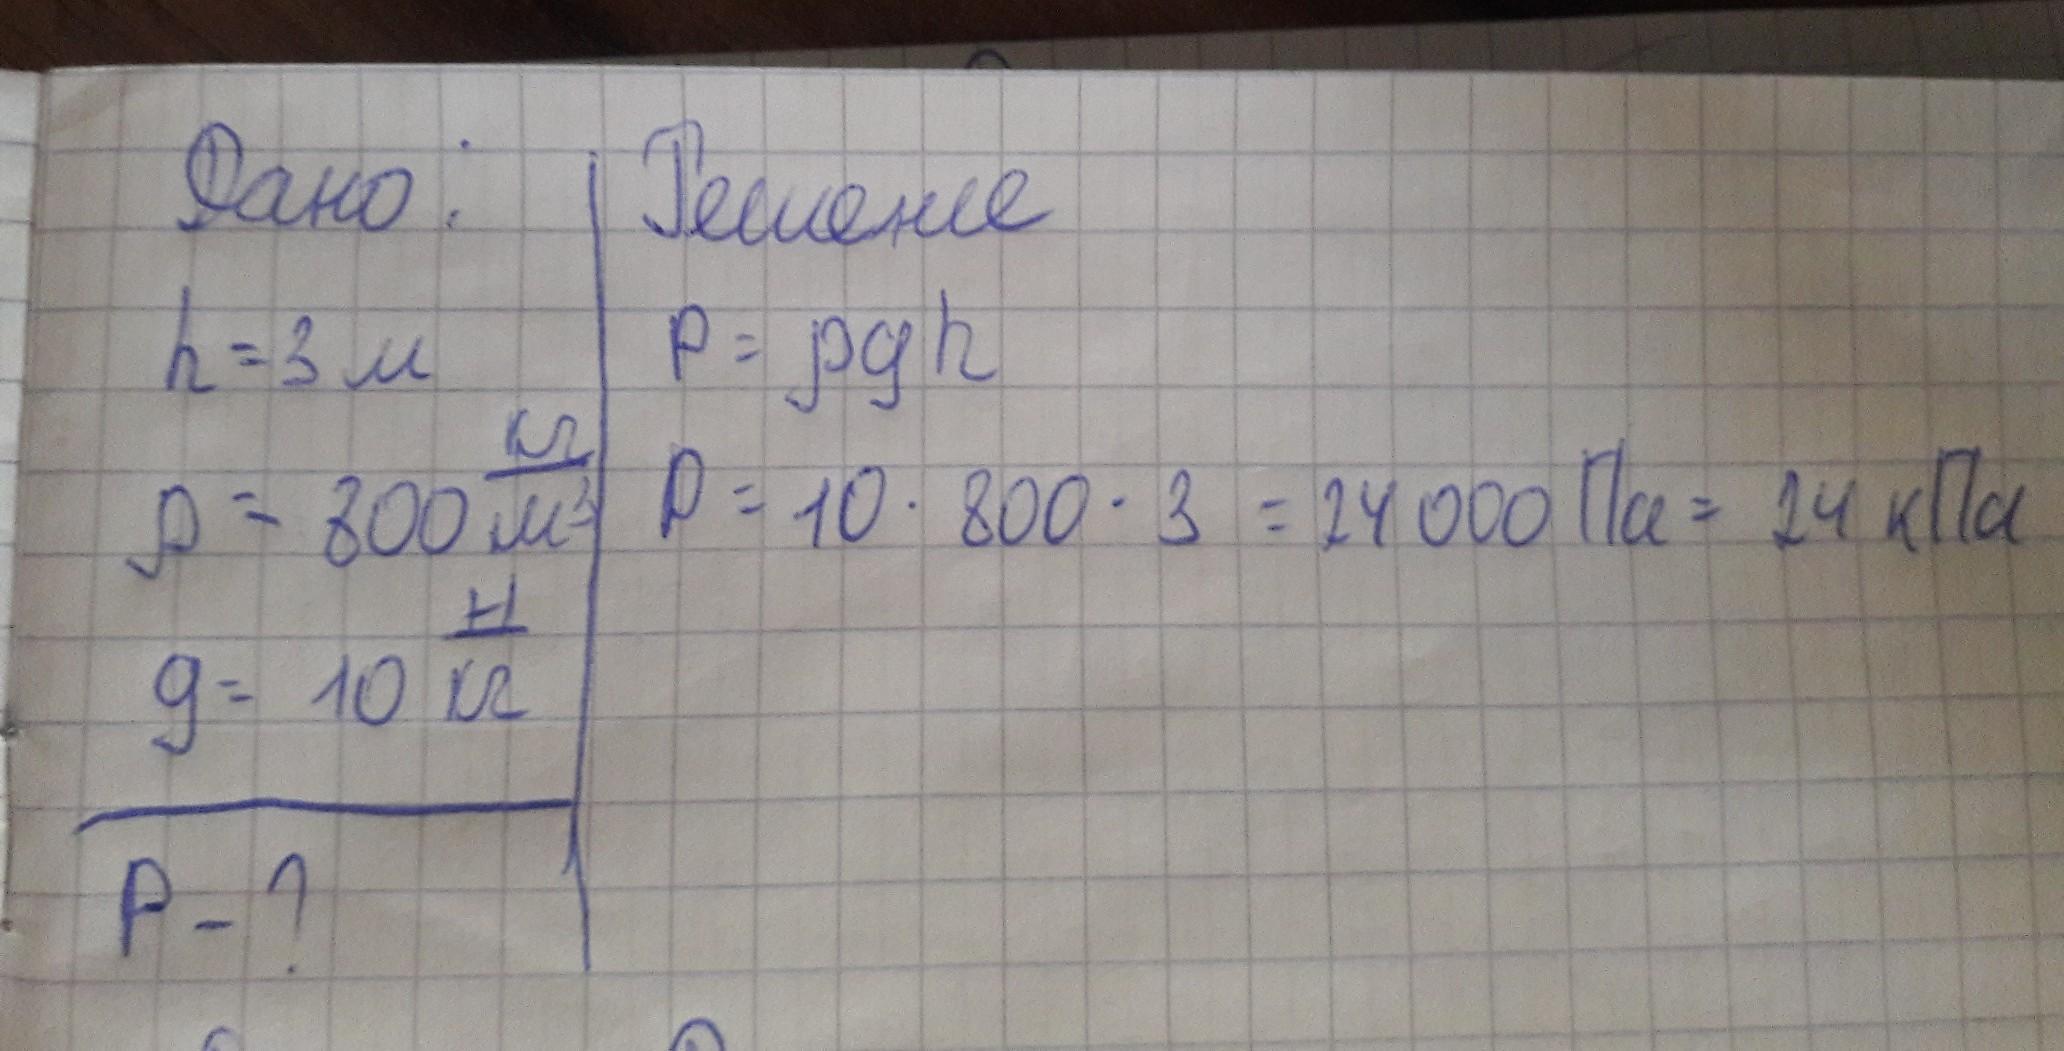 Дано:
h = 3 м
ρ = 800 кг/м³
g = 10 Н/кг
P - ?
Решение
P = ρgh
P = 10 · 800 · 3 = 24 000 Па = 24 кПа